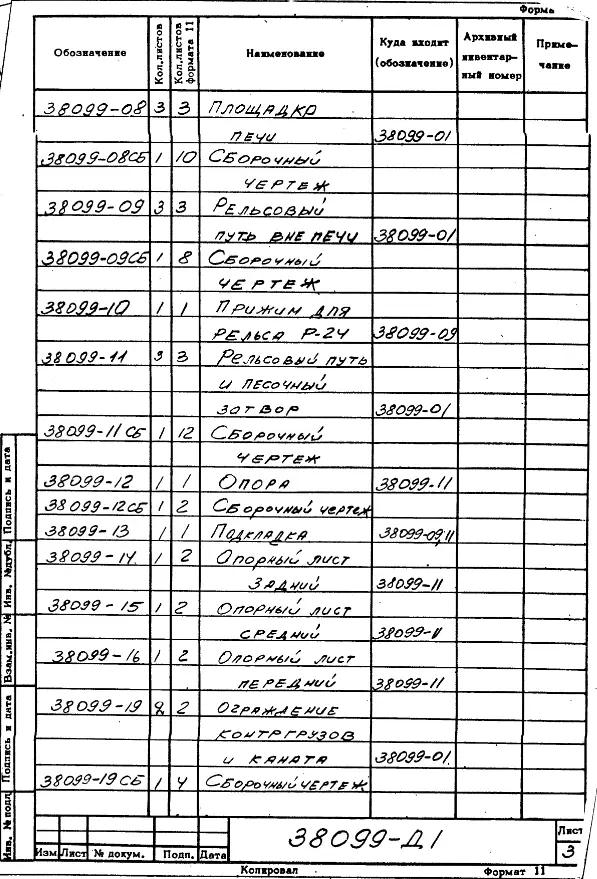 Форма
Обозначение Кол.листов Кол.листов формата 11 Наименование Куда входит (обозначение) Архивный инвентарный номер Примечание
38099-08 3 3 Площадка
печи 38099-01
38099-08СБ 1 10 Сборочный
чертеж
38099-09 3 3 Рельсовый
путь вне печи 38099-01
38099-09СБ 1 8 Сборочный
чертеж
38099-10 1 1 Прижим для
рельса Р-24 38099-09
38099-11 3 3 Рельсовый путь
и песочный
затвор 38099-01
38099-11СБ 1 12 Сборочный
чертеж
38099-12 1 1 Опора 38099-11
38099-12СБ 1 2 Сборочный чертеж
38099-13 1 1 Подкладка 38099-09,11
38099-14 1 2 Опорный лист
задний 38099-11
38099-15 1 2 Опорный лист
средний 38099-11
38099-16 1 2 Опорный лист
передний 38099-11
38099-19 2 2 Ограждение
контргрузов
и каната 38099-01
38099-19СБ 1 4 Сборочный чертеж
Подпись и дата
Инв. №дубл.
Взам.инв. №
Подпись и дата
Инв. №подл
38099-Д1
Лист
3
Изм Лист № докум. Подп. Дата
Копировал Формат 11